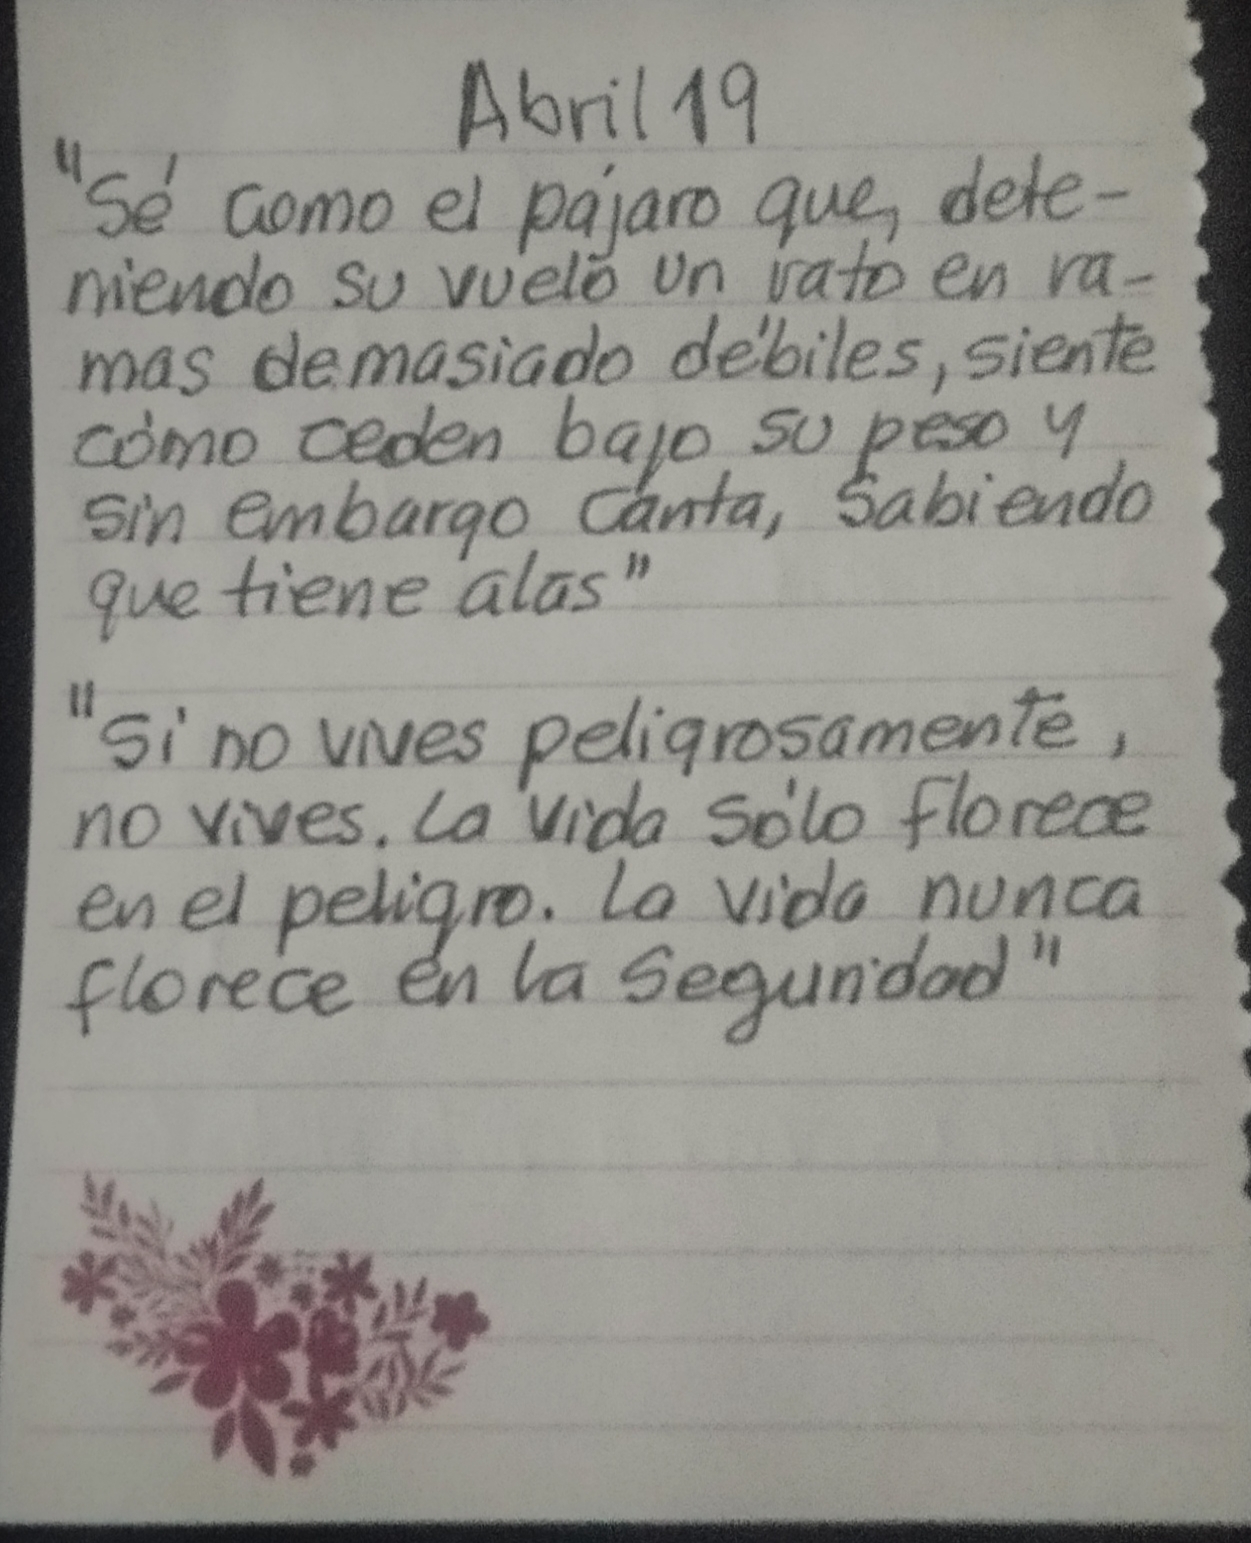 Abril 19
"Sé como el pájaro que, dete-
niendo su vuelo un rato en ra-
mas demasiado débiles, siente
cómo ceden bajo su peso y
sin embargo canta, sabiendo
que tiene alas"
"Si no vives peligrosamente,
no vives. La vida sólo florece
en el peligro. La vida nunca
florece en la seguridad"